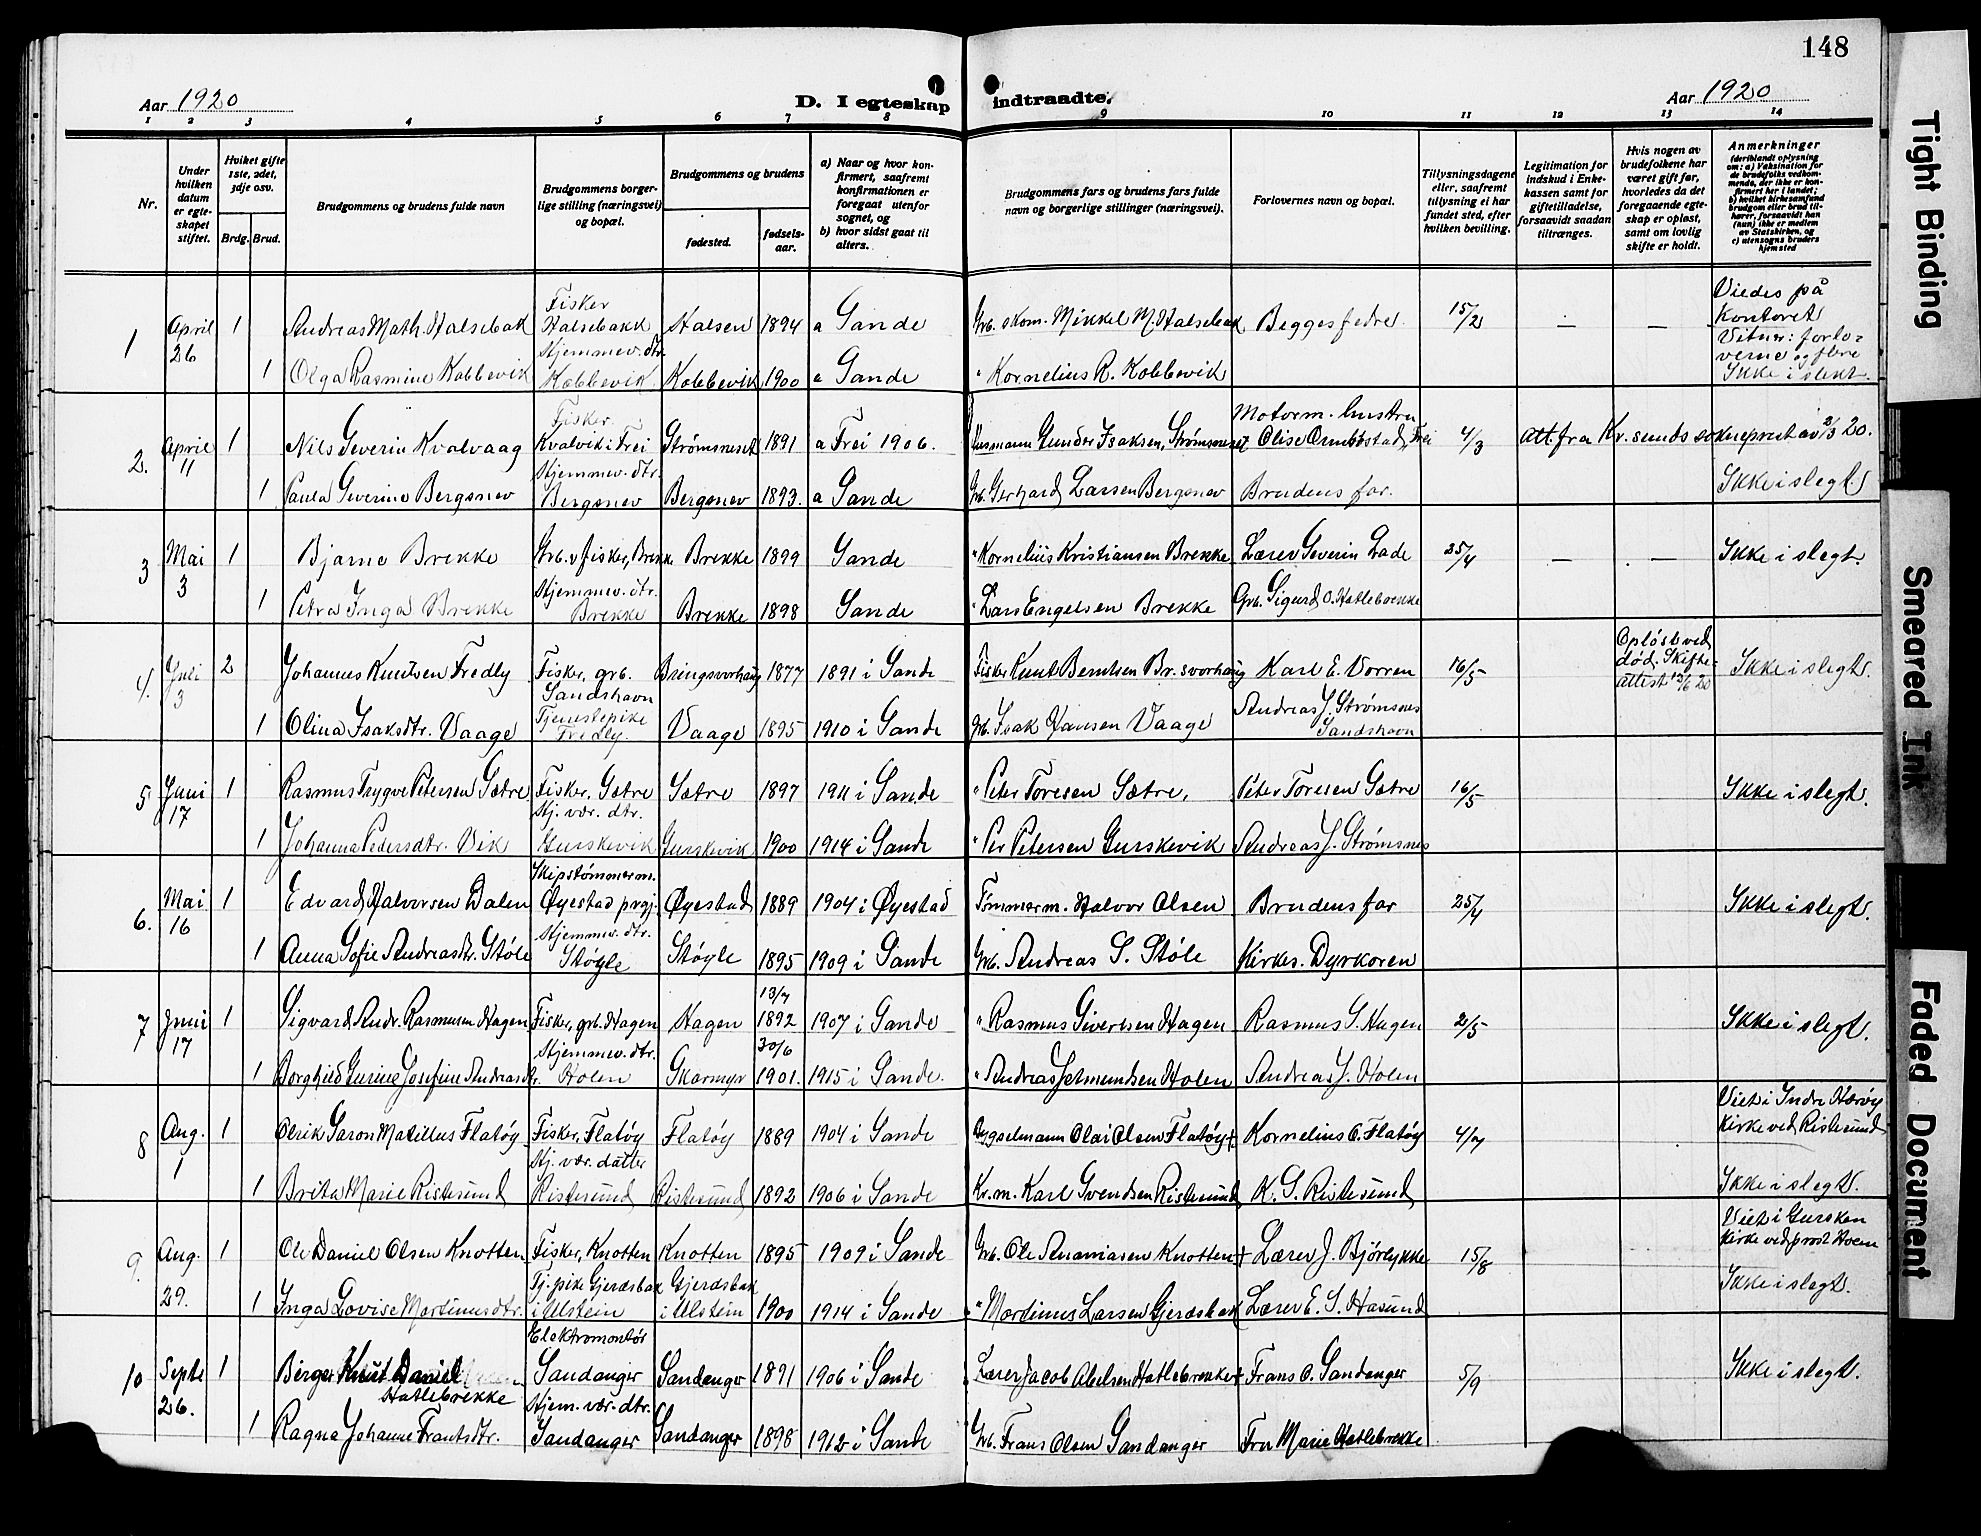 148
Aar 1920
D. I egteskap indtraadte.
Aar 1920
1 2 3 4 5 6 7 8 9 10 11 12 13 14
Nr.
Under hvilken datum er egteskapet stiftet.
Hvilket gifte 1ste, 2det, 3dje osv.
Brdg. Brud.
Brudgommens og brudens fulde navn
Brudgommens borgerlige stilling (næringsvei) og bopæl.
Brudgommens og brudens
fødested.
fødselsaar.
a) Naar og hvor konfirmert, saafremt konfirmationen er foregaat utenfor sognet, og
b) hvor sidst gaat til alters.
Brudgommens fars og brudens fars fulde navn og borgerlige stillinger (næringsvei).
Forlovernes navn og bopæl.
Tillysningsdagene eller, saafremt tillysning ei har fundet sted, efter hvilken bevilling.
Legitimation for indskud i Enkekassen samt for giftetilladelse, forsaavidt saadan tiltrænges.
Hvis nogen av brudefolkene har været gift før, hvorledes da det foregaaende egteskap er opløst, samt om lovlig skifte er holdt.
Anmerkninger
(deriblandt oplysning om: a) Vaksination for de brudefolks vedkommende, der ikke er konfirmert her i landet; b) hvilket kirkesamfund brudgom eller brud tilhører, forsaavidt han (hun) ikke er medlem av Statskirken, og c) utensogns bruders hjemsted
1 April 26 1 Andreas Math. Halsebak Fisker Halsebakk Halsen 1894 a Sande Grb. s Kom. Mikkel M. Halsebak Begges fedre 15/2 — — Viedes på kontoret Vitner: forloverne og flere Ikke i slekt.
1 Olga Rasmine Kobbevik Hjemmev. dtr. Kobbevik Kobbevik 1900 a Sande " Kornelius R. Kobbevik
2. April 11 1 Nils Severin Kvalvaag Fisker Kvalvik i Frei Strømsneset 1891 a Frei 1906. Husmann Gunder Isaksen, Strømsneset Motorm. hustru Olise Frei 4/3 Att. fra Kr.sunds sokneprest av 2/3 20.
1 Paula Severine Bergsnev Hjemmev. dtr. Bergsnev Bergsnev 1893. a Sande Grb. Gerhard Larsen Bergsnev Brudens far. Ikke i slegt.
3 Mai 3 1 Bjarne Brekke Grb. s fisker, Brekk. Brekke 1899 Sande " Kornelius Kristiansen Brekke Lærer Severin Gade 25/4 — — Ikke i slegt.
1 Petra Inga Brekke Hjemmev. dtr. Brekke Brekke 1898 Sande " Lars Engelsen Brekke Grb. Sigurd O. Hatlebrekke
4. Juli 3 2 Johannes Knutsen Fredly Fisker, grb. Sandshavn Bringsvorhaug 1877 1891 i Sande Fisker Knut Berntsen Br.svorhaug Karl E. Vorren 16/5 Opløst ved død. Skifteattest 12/6 20 Ikke i slegt.
1 Olina Isaksdtr. Vaage Tjenstepike Fredly. Vaage 1895 1910 i Sande Grb. Isak Hansen Vaage Andreas J. Strømsnes Sandshavn
5 Juni 17 1 Rasmus Trygve Petersen Sætre Fisker, Sætre Sætre 1897 1911 i Sande " Peter Toresen Sætre, Peter Toresen Sætre 16/5 Ikke i slegt.
1 Johanna Pedersdtr. Vik Hj. vær. dtr. Gurskevik Gurskevik 1900 1914 i Sande " Per Petersen Gurskevik Andreas J. Strømsnes
6. Mai 16 1 Edvard Halvorsen Dalen Skipstømmerm. Øyestad prgj. Øyestad 1889 1904 i Øyestad Tømmerm. Halvor Olsen Brudens far 25/4 Ikke i slegt.
1 Anna Sofie Andreasdtr. Støle Hjemmev. dtr. Støyle Støyle 1895 1909 i Sande Grb. Andreas S. Støle Kirkes. Dyrkoren
7 Juni 17 1 Sigvard Andr. Rasmusen Hagen Fisker, grb. Hagen Hagen 13/7 1892 1907 i Sande " Rasmus Sivertsen Hagen Rasmus S. Hagen 2/5 Ikke i slegt.
1 Borghild Gurine Josefine Andreasdtr. Hjemmev. dtr. Holen Skarmyr 30/6 1901. 1915 i Sande. " Andreas Jetmundsen Holen Andreas J. Holen
8 Aug. 1 1 Olrik Saron Matillus Flatøy Fisker, Flatøy Flatøy 1889 1904 i Sande Olai Olsen Flatøy + Kornelius O. Flatøy 4/7 Viet i Indre Herøy Kirke ved Ristesund
1 Brita Marie Ristesund Hj. vær. datter Ristesund Ristesund 1892 1906 i Sande Kr. m. Karl Svendsen Ristesund K. S. Ristesund Ikke i slegt.
9. Aug. 29. 1 Ole Daniel Olsen Knotten Fisker, Knotten Knotten 1895 1909 i Sande Grb. Ole Ananiasen Knotten + Lærer J. Bjørlykke 15/8 Viet i Gursken Kirke ved prost Hoem
1 Inga Lovise Martinusdtr. Tj. pike Gjerdsbak i Ulstein Gjerdsbak i Ulstein 1900 1914 i Sande " Martinus Larsen Gjerdsbak Lærer E. S. Hasund Ikke i slegt.
10 Septe 26. 1 Birger Knut Daniel Hatlebrekke Elektromontør Sandanger Sandanger 1891 1906 i Sande Lærer Jacob Abelsen Hatlebrekke + Frans O. Sandanger 5/9 Ikke i slegt.
1 Ragna Johanne Frantsdtr. Hjem. vær. dtr. Sandanger Sandanger 1898 1912 i Sande Grb. Frans Olsen Sandanger Fru Marie Hatlebrekke
Tight Binding
Smeared Ink
Faded Document